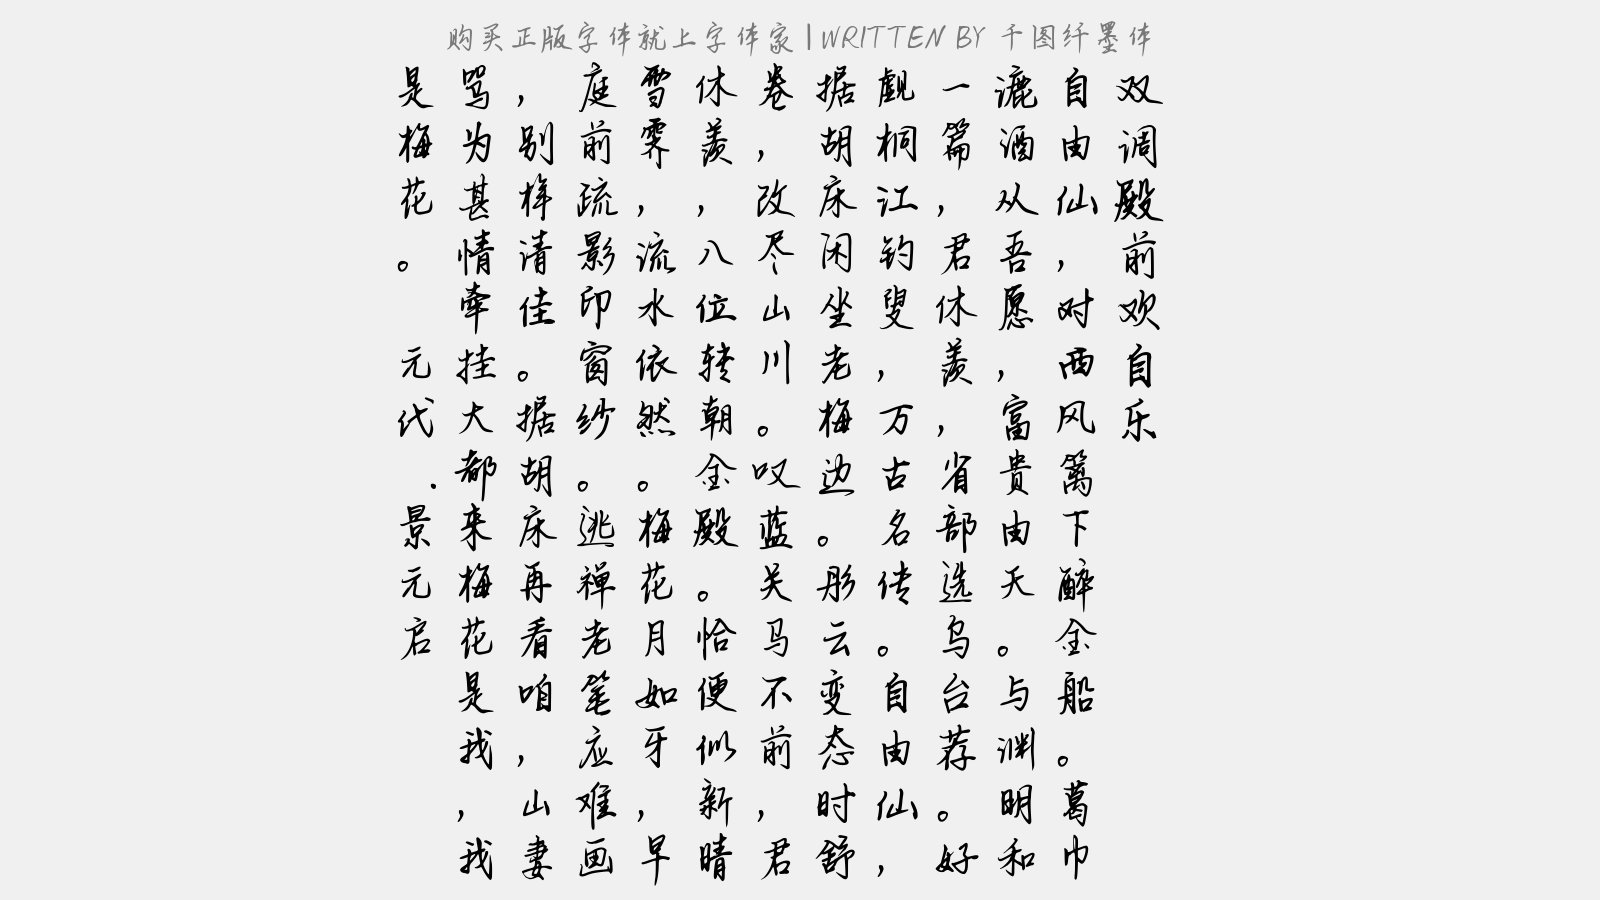 购买正版字体就上字体家 | WRITTEN BY 千图纤墨体
双调殿前欢自乐
自由仙，对西风篱下醉金船。葛巾
漉酒从吾愿，富贵由天。与渊明和
一篇，君休羡，省部选乌台荐。好
觑桐江钓叟，万古名传。自由仙，
据胡床闲坐老梅边。彤云变态时舒
卷，改尽山川。叹蓝关马不前，君
休羡，八位转朝金殿。恰便似新晴
雪霁，流水依然。梅花月如牙，早
庭前疏影印窗纱。逃禅老笔应难画
，别样清佳。据胡床再看咱，山妻
骂为甚情牵挂大都来梅花是我，我
是梅花。 元代.景元启